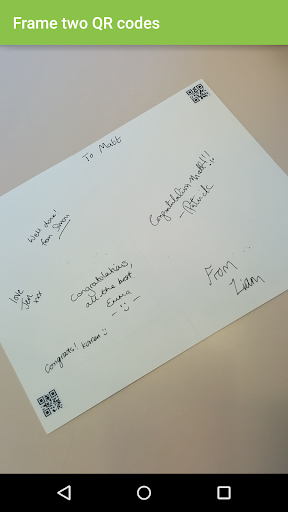 Frame two QR codes
To Matt
Well done!
from Simon
Congratulations Matt!!
- Patrick
love
Jen
xxx
Congratulations,
all the best
Emma
From
Liam
Congrats! Karen :)